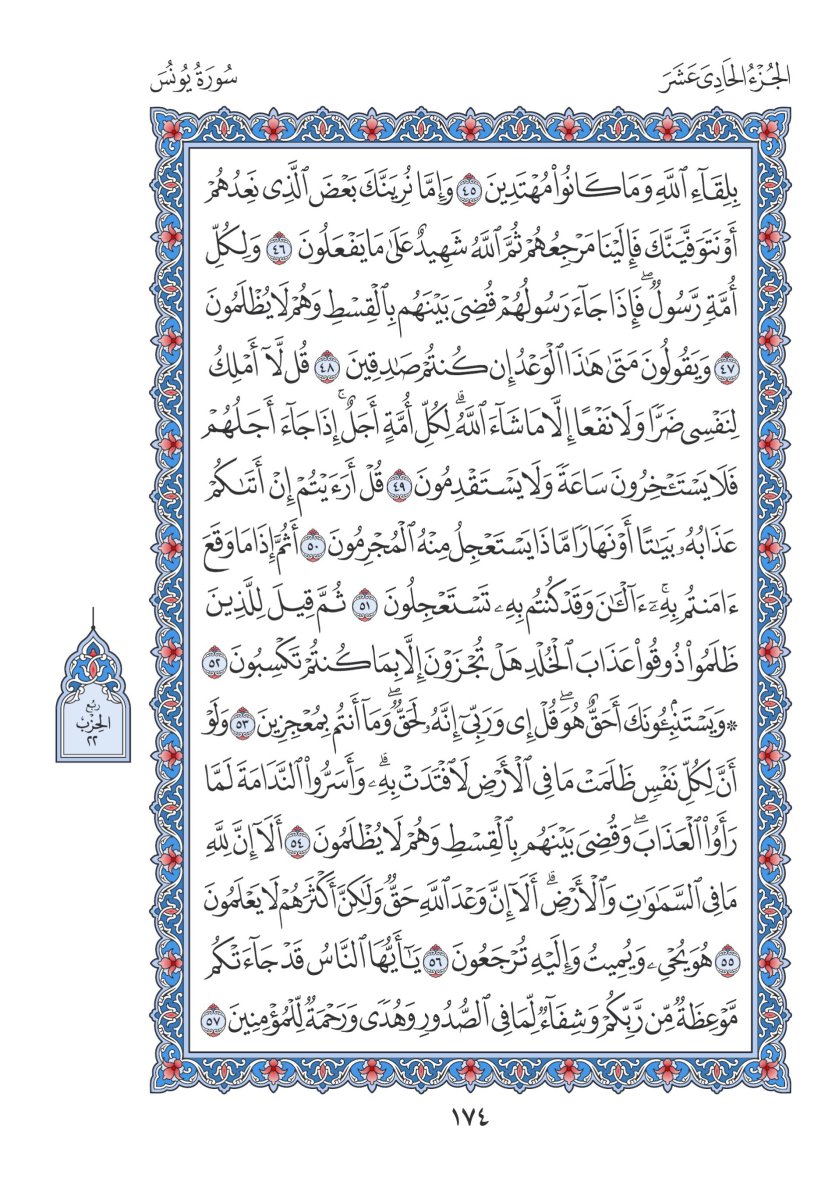 الجُزْءُ الحَادِىَ عَشَرَ
سُورَةُ يُونُسَ
بِلِقَآءِ ٱللَّهِ وَمَا كَانُواْ مُهْتَدِينَ ٤٥ وَإِمَّا نُرِيَنَّكَ بَعْضَ ٱلَّذِى نَعِدُهُمْ
أَوْ نَتَوَفَّيَنَّكَ فَإِلَيْنَا مَرْجِعُهُمْ ثُمَّ ٱللَّهُ شَهِيدٌ عَلَىٰ مَا يَفْعَلُونَ ٤٦ وَلِكُلِّ
أُمَّةٍ رَّسُولٌۖ فَإِذَا جَآءَ رَسُولُهُمْ قُضِىَ بَيْنَهُم بِٱلْقِسْطِ وَهُمْ لَا يُظْلَمُونَ
٤٧ وَيَقُولُونَ مَتَىٰ هَٰذَا ٱلْوَعْدُ إِن كُنتُمْ صَٰدِقِينَ ٤٨ قُل لَّآ أَمْلِكُ
لِنَفْسِى ضَرًّا وَلَا نَفْعًا إِلَّا مَا شَآءَ ٱللَّهُۗ لِكُلِّ أُمَّةٍ أَجَلٌۚ إِذَا جَآءَ أَجَلُهُمْ
فَلَا يَسْتَـْٔخِرُونَ سَاعَةً وَلَا يَسْتَقْدِمُونَ ٤٩ قُلْ أَرَءَيْتُمْ إِنْ أَتَىٰكُمْ
عَذَابُهُۥ بَيَٰتًا أَوْ نَهَارًا مَّاذَا يَسْتَعْجِلُ مِنْهُ ٱلْمُجْرِمُونَ ٥٠ أَثُمَّ إِذَا مَا وَقَعَ
ءَامَنتُم بِهِۦٓۚ ءَآلْـَٰٔنَ وَقَدْ كُنتُم بِهِۦ تَسْتَعْجِلُونَ ٥١ ثُمَّ قِيلَ لِلَّذِينَ
ظَلَمُواْ ذُوقُواْ عَذَابَ ٱلْخُلْدِ هَلْ تُجْزَوْنَ إِلَّا بِمَا كُنتُمْ تَكْسِبُونَ ٥٢
۞ وَيَسْتَنۢبِـُٔونَكَ أَحَقٌّ هُوَۖ قُلْ إِى وَرَبِّىٓ إِنَّهُۥ لَحَقٌّۖ وَمَآ أَنتُم بِمُعْجِزِينَ ٥٣ وَلَوْ
أَنَّ لِكُلِّ نَفْسٍ ظَلَمَتْ مَا فِى ٱلْأَرْضِ لَٱفْتَدَتْ بِهِۦۗ وَأَسَرُّواْ ٱلنَّدَامَةَ لَمَّا
رَأَوُاْ ٱلْعَذَابَۖ وَقُضِىَ بَيْنَهُم بِٱلْقِسْطِ وَهُمْ لَا يُظْلَمُونَ ٥٤ أَلَآ إِنَّ لِلَّهِ
مَا فِى ٱلسَّمَٰوَٰتِ وَٱلْأَرْضِۗ أَلَآ إِنَّ وَعْدَ ٱللَّهِ حَقٌّ وَلَٰكِنَّ أَكْثَرَهُمْ لَا يَعْلَمُونَ
٥٥ هُوَ يُحْىِۦ وَيُمِيتُ وَإِلَيْهِ تُرْجَعُونَ ٥٦ يَٰٓأَيُّهَا ٱلنَّاسُ قَدْ جَآءَتْكُم
مَّوْعِظَةٌ مِّن رَّبِّكُمْ وَشِفَآءٌ لِّمَا فِى ٱلصُّدُورِ وَهُدًى وَرَحْمَةٌ لِّلْمُؤْمِنِينَ ٥٧
رُبُع
الحِزْب
٢٢
١٧٤